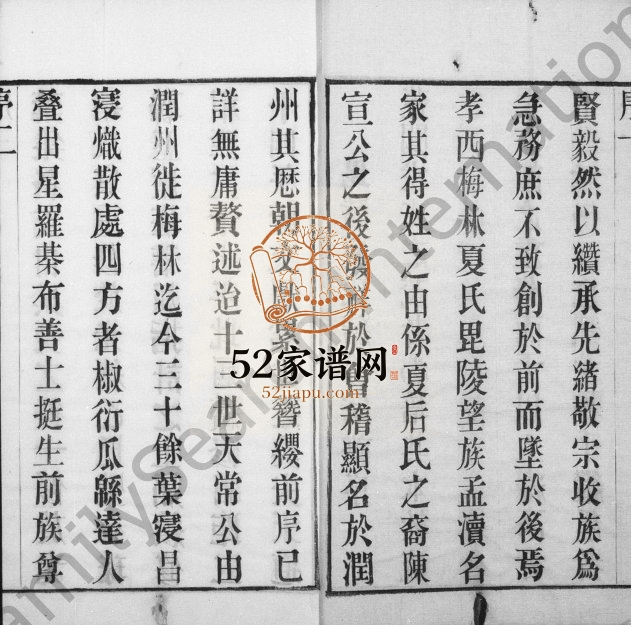 賢毅然以纘承先緒敬宗收族爲
急務庶不致創於前而墜於後焉
孝西梅林夏氏毘陵望族孟瀆名
家其得姓之由係夏后氏之裔陳
宣公之後於會稽顯名於潤
州其歷朝文獻簪纓前序已
詳無庸贅述迨十三世天常公由
潤州徙梅林迄今三十餘葉寖昌
寖熾散處四方者椒衍瓜緜達人
叠出星羅棊布善士挺生前族尊
序二
52家谱网
52jiapu.com
FamilySearch International